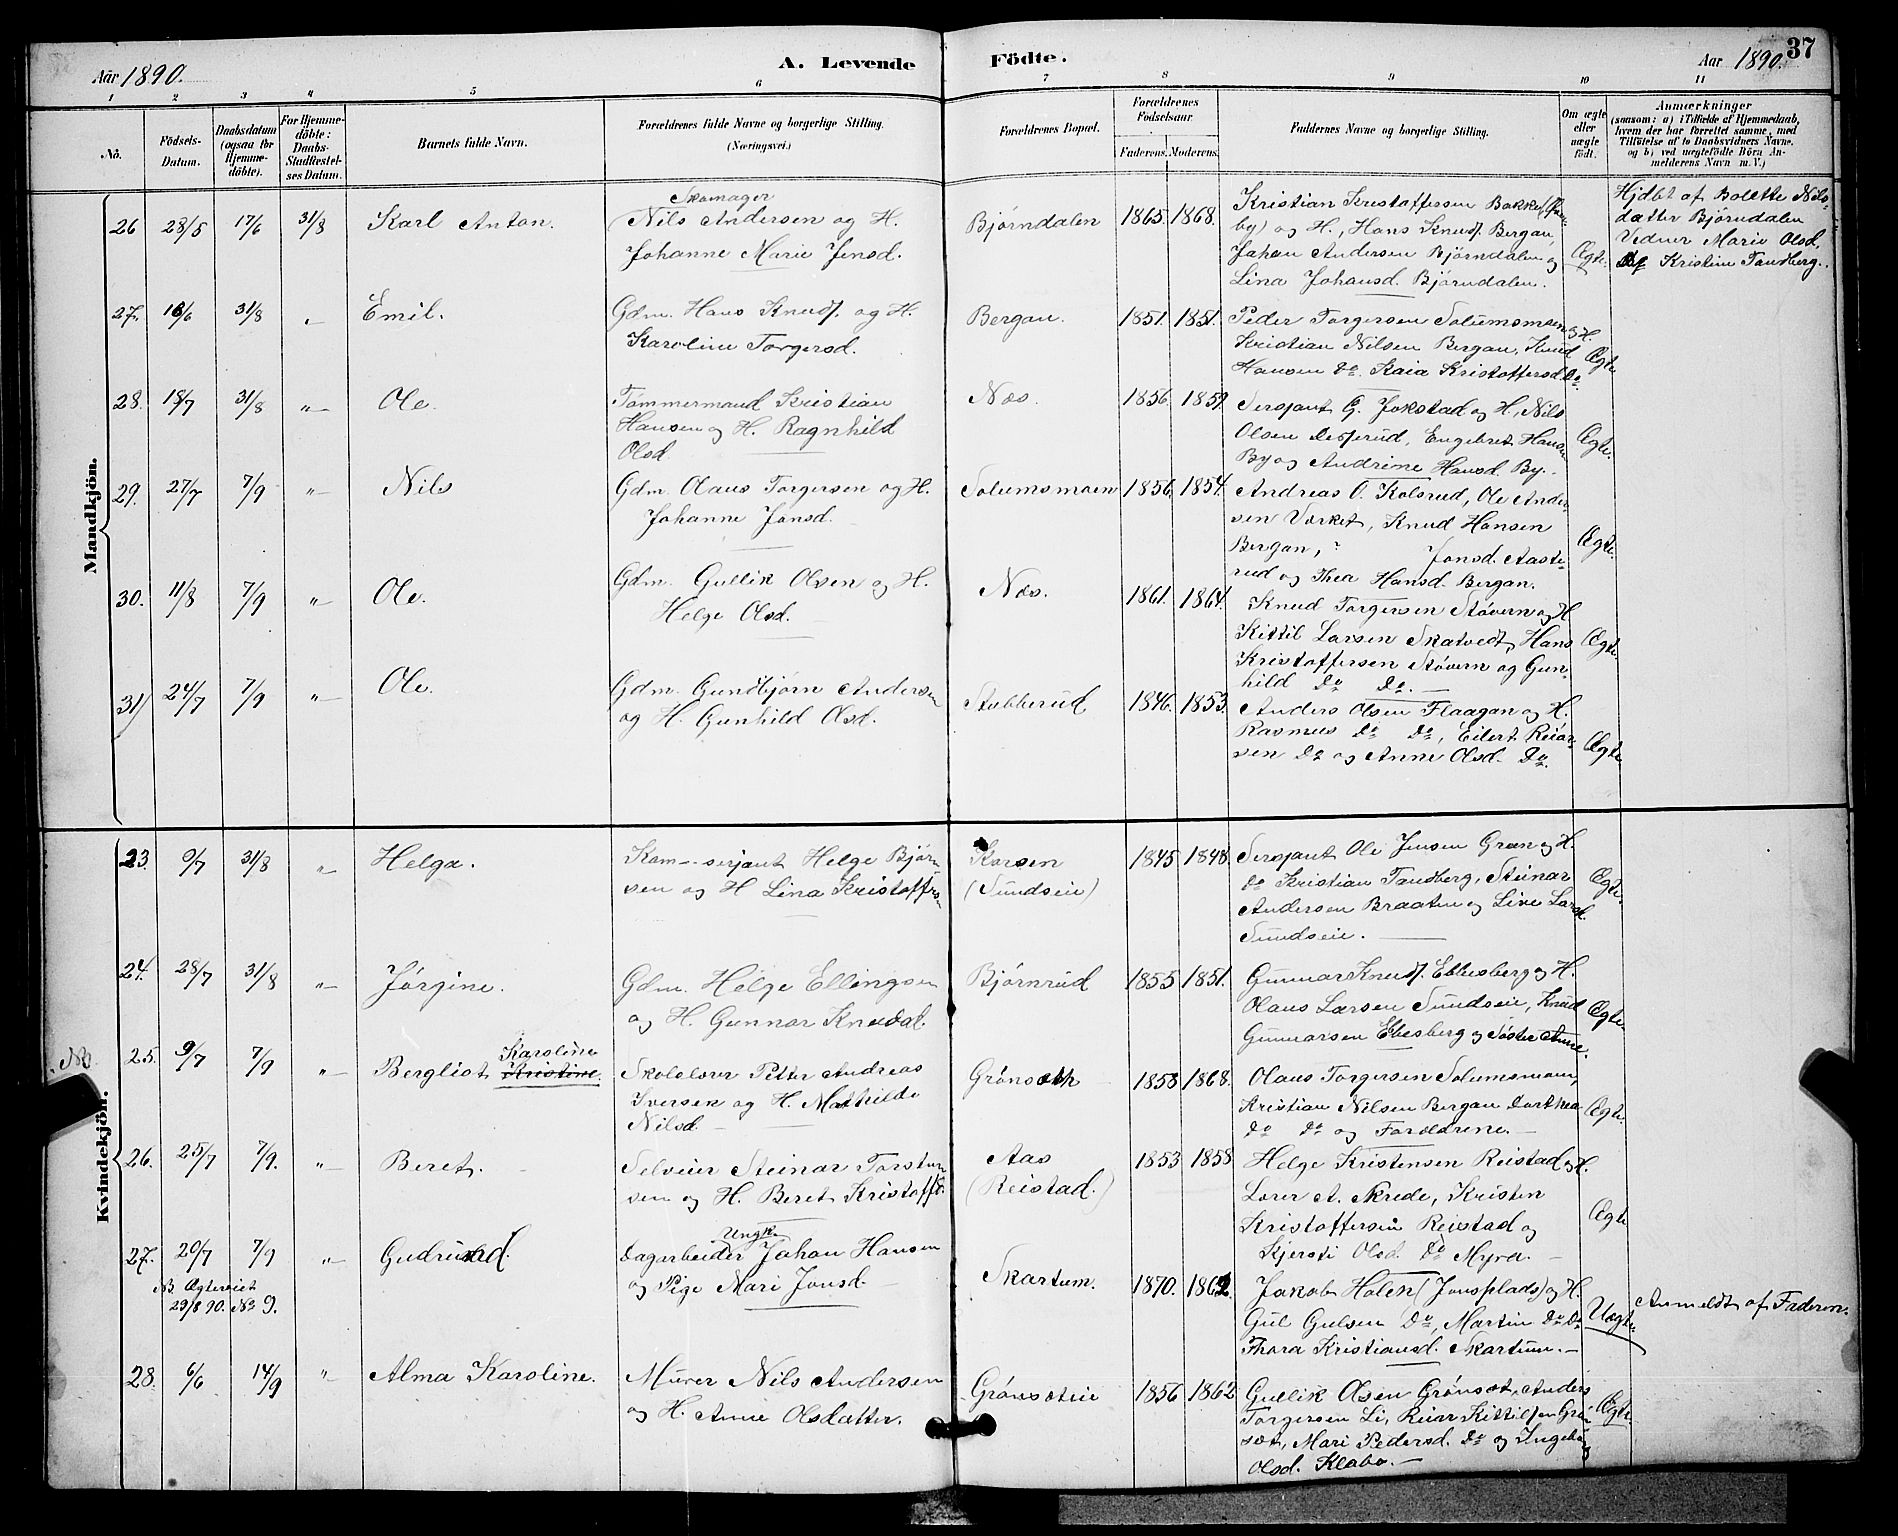 Aar 1890.
A. Levende
Födte.
Aar 1890.
37
1 2 3 4 5 6 7 8 9 10 11
Nô.
Födsels-
Datum.
Daabsdatum
(ogsaa for
Hjemme-
döbte).
For Hjemme-
döbte:
Daabs-
Stadfæstel-
ses Datum.
Barnets fulde Navn.
Forældrenes fulde Navne og borgerlige Stilling.
(Næringsvei.)
Forældrenes Bopæl.
Forældrenes
Födselsaar.
Faderens. Moderens.
Faddernes Navne og borgerlige Stilling.
Om ægte
eller
uægte
födt.
Anmærkninger
(saasom: a) i Tilfælde af Hjemmedaab,
hvem der har forrettet samme, med
Tilföielse af to Daabsvidners Navne,
og b) ved uægtefödte Börn An-
melderens Navn m. V.)
Mandkjön.
26 28/5 17/6 31/8 Karl Anton.
Skomager
Nils Andersen og H.
Johanne Marie Jensd.
Bjørndalen 1865. 1868.
Kristian Kristoffersen Bakke
by) og H., Hans Knuds. Bergan,
Johan Andersen Bjørndalen og
Lina Johansd. Bjørndalen.
Ægte.
Hjdbt af Bolette Nils-
datter Bjørndalen
Vidner Marie Olsd.
Kristine Tandberg.
27. 16/6 31/8 " Emil.
Gdm. Hans Knuds. og H.
Karoline Torgersd.
Bergan. 1851. 1851.
Peder Torgersen Solumsmoen og H.
Kristian Nilsen Bergan, Knud
Hansen Do. Kaia Kristoffersd. Do
Ægte
28. 18/7 31/8 " Ole.
Tömmermand Kristian
Hansen og H. Ragnhild
Olsd.
Næs. 1856. 1859.
Sersjant G. Jokstad og H, Nils
Olsen Desserud, Engebret Hansen
By og Andrine Hansd. By.
Ægte.
29. 27/7 7/9 " Nils
Gdm. Olaus Torgersen og H.
Johanne Jonsd.
Solumsmoen 1856. 1854.
Andreas O. Kolsrud, Ole Ander-
sen Værket, Knud Hansen
Bergan, ? Jonsd. Aaste-
rud og Thea Hansd. Bergan.
Ægte.
30. 11/8 7/9 " Ole.
Gdm. Gullik Olsen og H.
Helge Olsd.
Næs. 1861. 1864.
Knud Torgersen Støvern og H
Kittil Larsen Skatvedt, Hans
Kristoffersen Støvern og Gun-
hild Do Do.
Ægte.
31) 24/7 7/9 " Ole.
Gdm. Gundbjørn Andersen
og H. Gunhild Olsd.
Stubberud 1846. 1853.
Anders Olsen Flaagan og H.
Rasmus Do Do, Eilert Reiar-
sen Do og Anne Olsd. Do.
Ægte
Kvindekjön.
23. 9/7 31/8 " Helga.
Kom-serjant Helge Bjørn-
sen og H Lina Kristoffers-
Korsen
(Sundseie)
1845 1848.
Sersjant Ole Jensen Gran og H.
Do Kristian Tandberg, Steinar
Andersen Braaten og Live Larsd.
Sundseie.
Ægte.
24. 28/7 31/8 " Jørgine.
Gdm. Helge Ellingsen
og H. Gunnar Knudsd.
Bjørnrud 1855 1851.
Gunnar Knuds. Ebbesberg og H.
Olaus Larsen Sundseie, Knud
Gunnarsen Ebbesberg og Søster Anne.
Ægte.
NB.
25. 9/7 7/9 " Bergliot Karoline
Kristine.
Skolelærer Petter Andreas
Iversen og H. Mathilde
Nilsd.
Grønseth 1858 1868.
Olaus Torgersen Solumsmoen,
Kristian Nilsen Bergan Dorthea
Do Do og Forældrene.
Ægte.
26. 25/7 7/9. " Beret.
Selveier Steinar Torsten-
sen og H. Beret Kristoffsd.
Aas
(Reistad.)
1853 1858
Helge Kristensen Reistad og H.
Lærer A. Skrede, Kristen
Kristoffersen Reistad og
Kjersti Olsd. Do Myra.
Ægte
27. 20/7 7/9 " Gudrun
NB. Ægteviet
29/8 90. No 9.
Ungk.
Dagarbeider Johan Hansen
og Pige Mari Jonsd.
Skartum. 1870. 1862.
Jakob Holen (Jonsplads) og H.
Gul Gulsen Do, Martin Do Do
Thora Kristiansd. Skartum.
Uægte
Anmeldt af Faderen.
28. 6/6 14/9 " Alma Karoline.
Murer Nils Andersen
og H. Anne Olsdatter.
Grønsæteie 1856 1862
Gullik Olsen Grønsæt, Anders
Torgersen Li, Reiar Kittilsen Grøn
sæt, Mari Pedersd. Do og Ingeborg
Olsd. Klabo.
Ægte